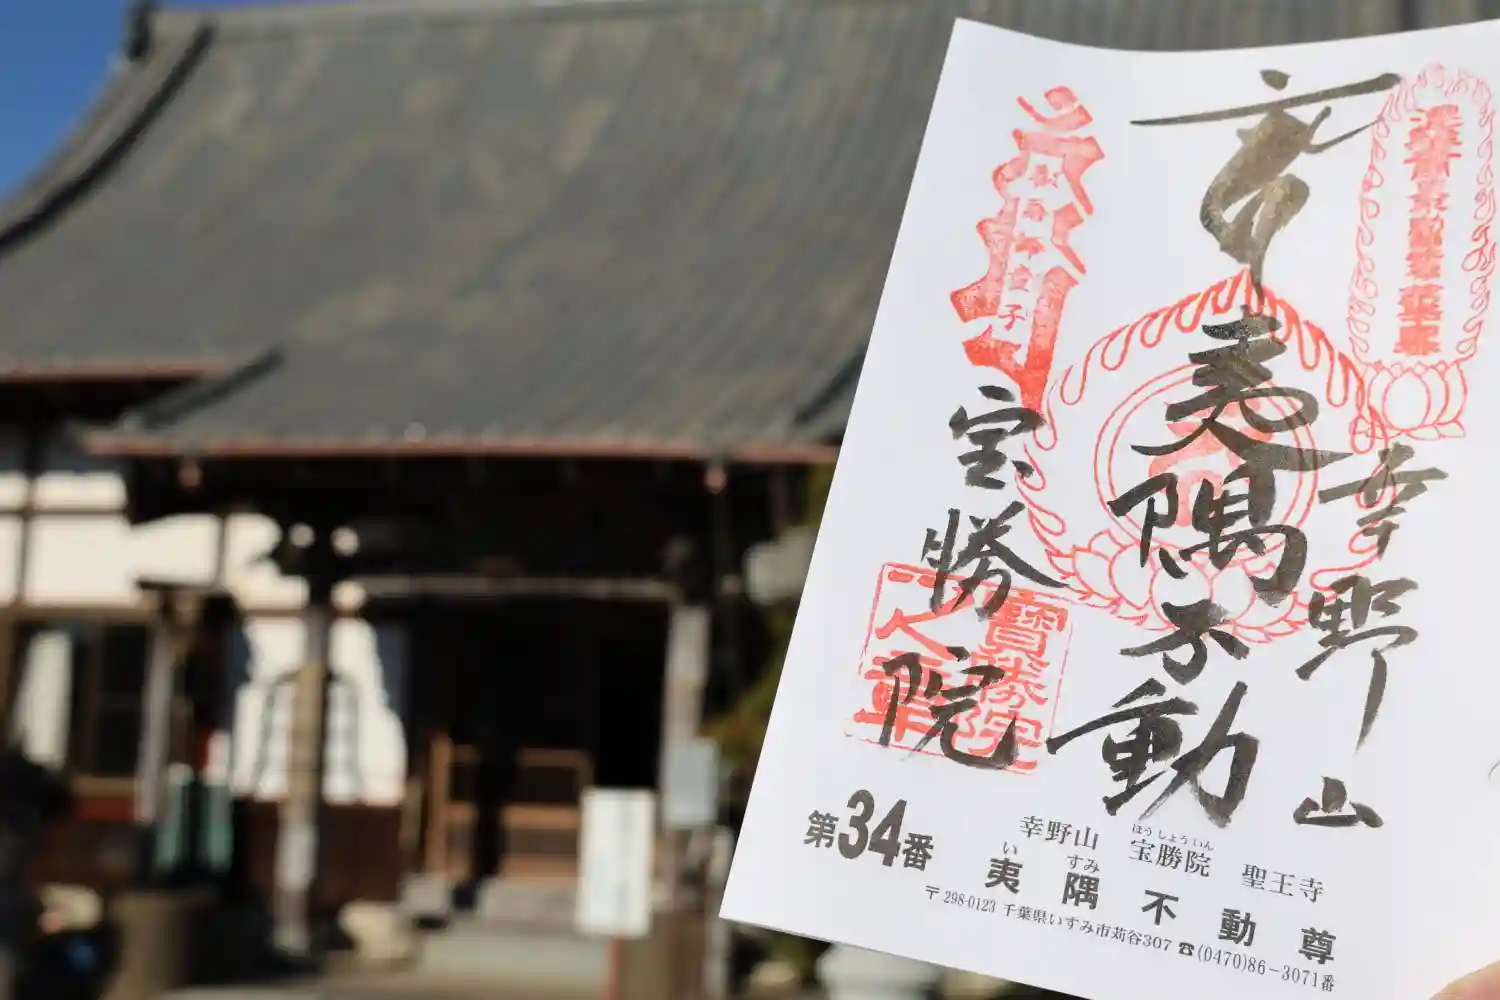 幸野山
夷隅不動
宝勝院
寶勝院
之章
第34番
幸野山 宝勝院 聖王寺
ほうしょういん
いすみ
夷隅不動尊
〒298-0123 千葉県いすみ市苅谷307 ☎(0470)86-3071番